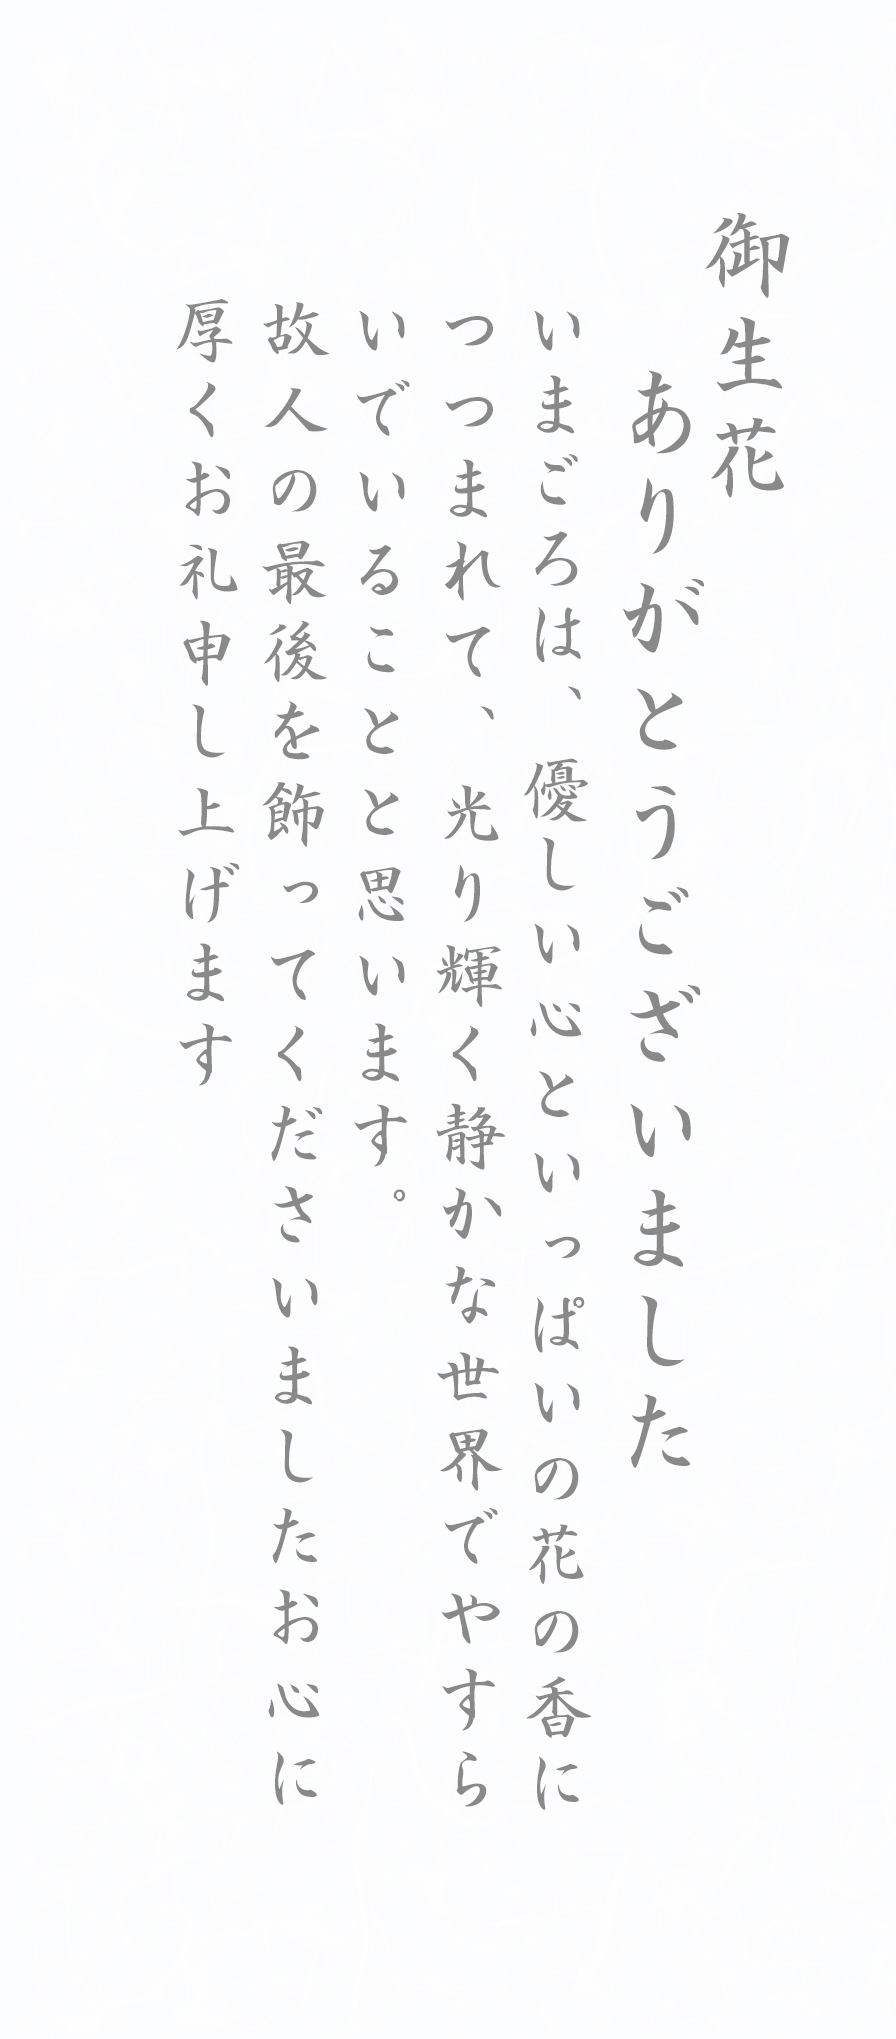 御生花
ありがとうございました
いまごろは、優しい心といっぱいの花の香に
つつまれて、光り輝く静かな世界でやすら
いでいることと思います。
故人の最後を飾ってくださいましたお心に
厚くお礼申し上げます